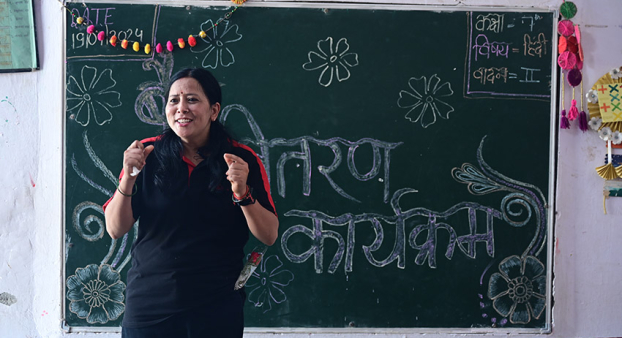 DATE
19/01/2024
कक्षा = 7th
विषय = हिंदी
वादन = III
वितरण
कार्यक्रम